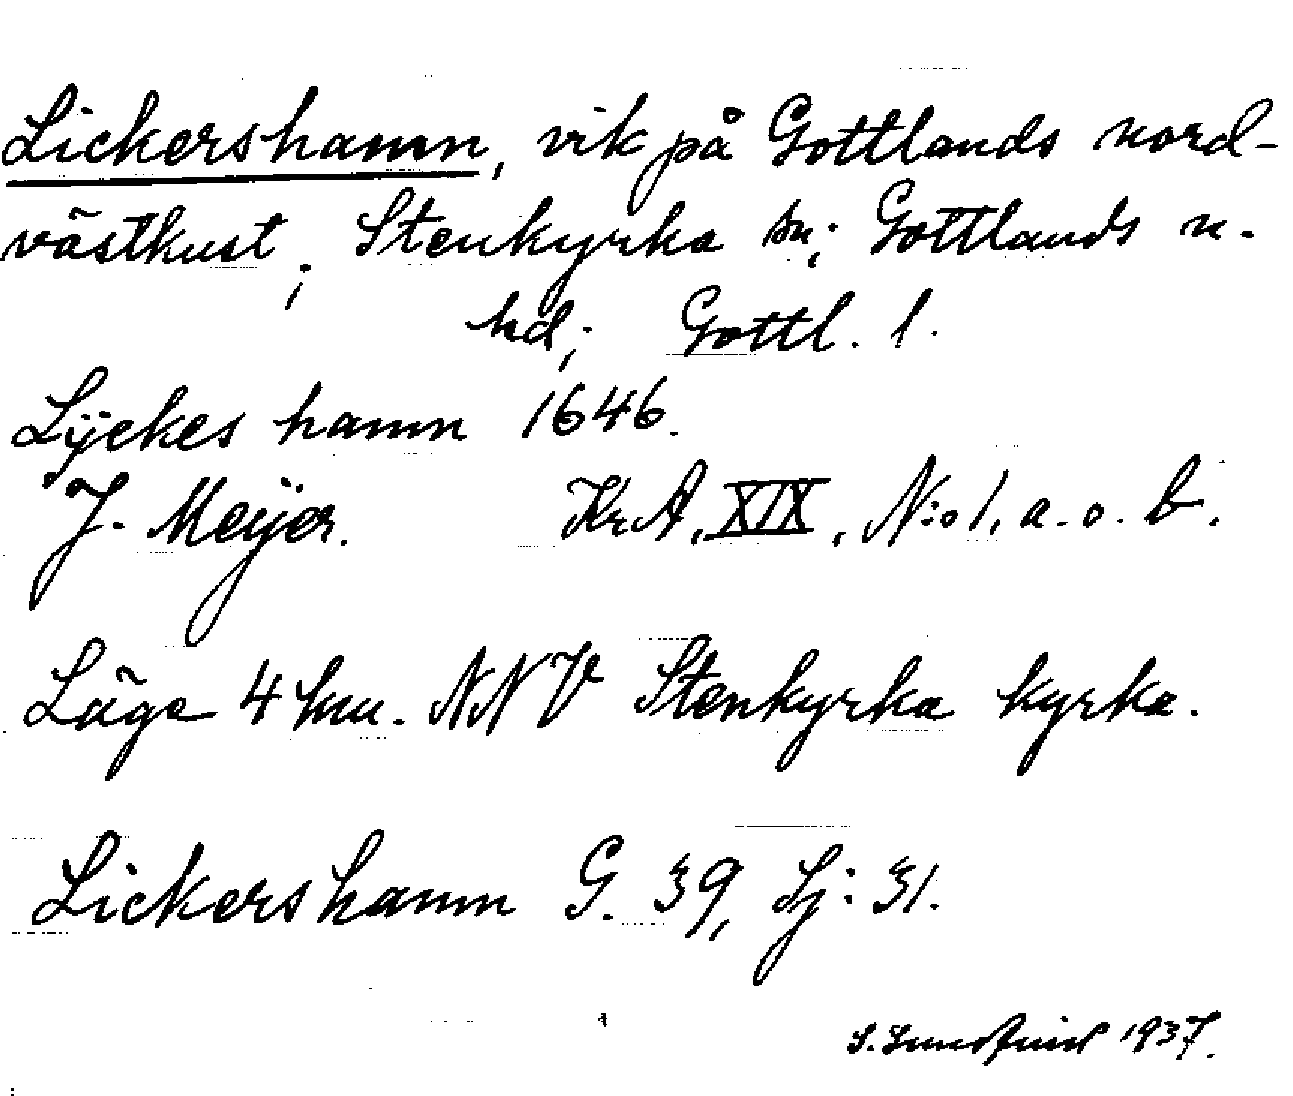 Lickershamn, vik på Gottlands nord-
västkust; Stenkyrka sn; Gottlands n.
hd; Gottl. l.
Lÿckes hamn 1646.
J. Meÿer. Kr.A, XIX, N:o 1, a. o. b.
Läge 4 km. NNV Stenkyrka kyrka.
Lickershamn G. 39, Sj: 31.
S. 1937.